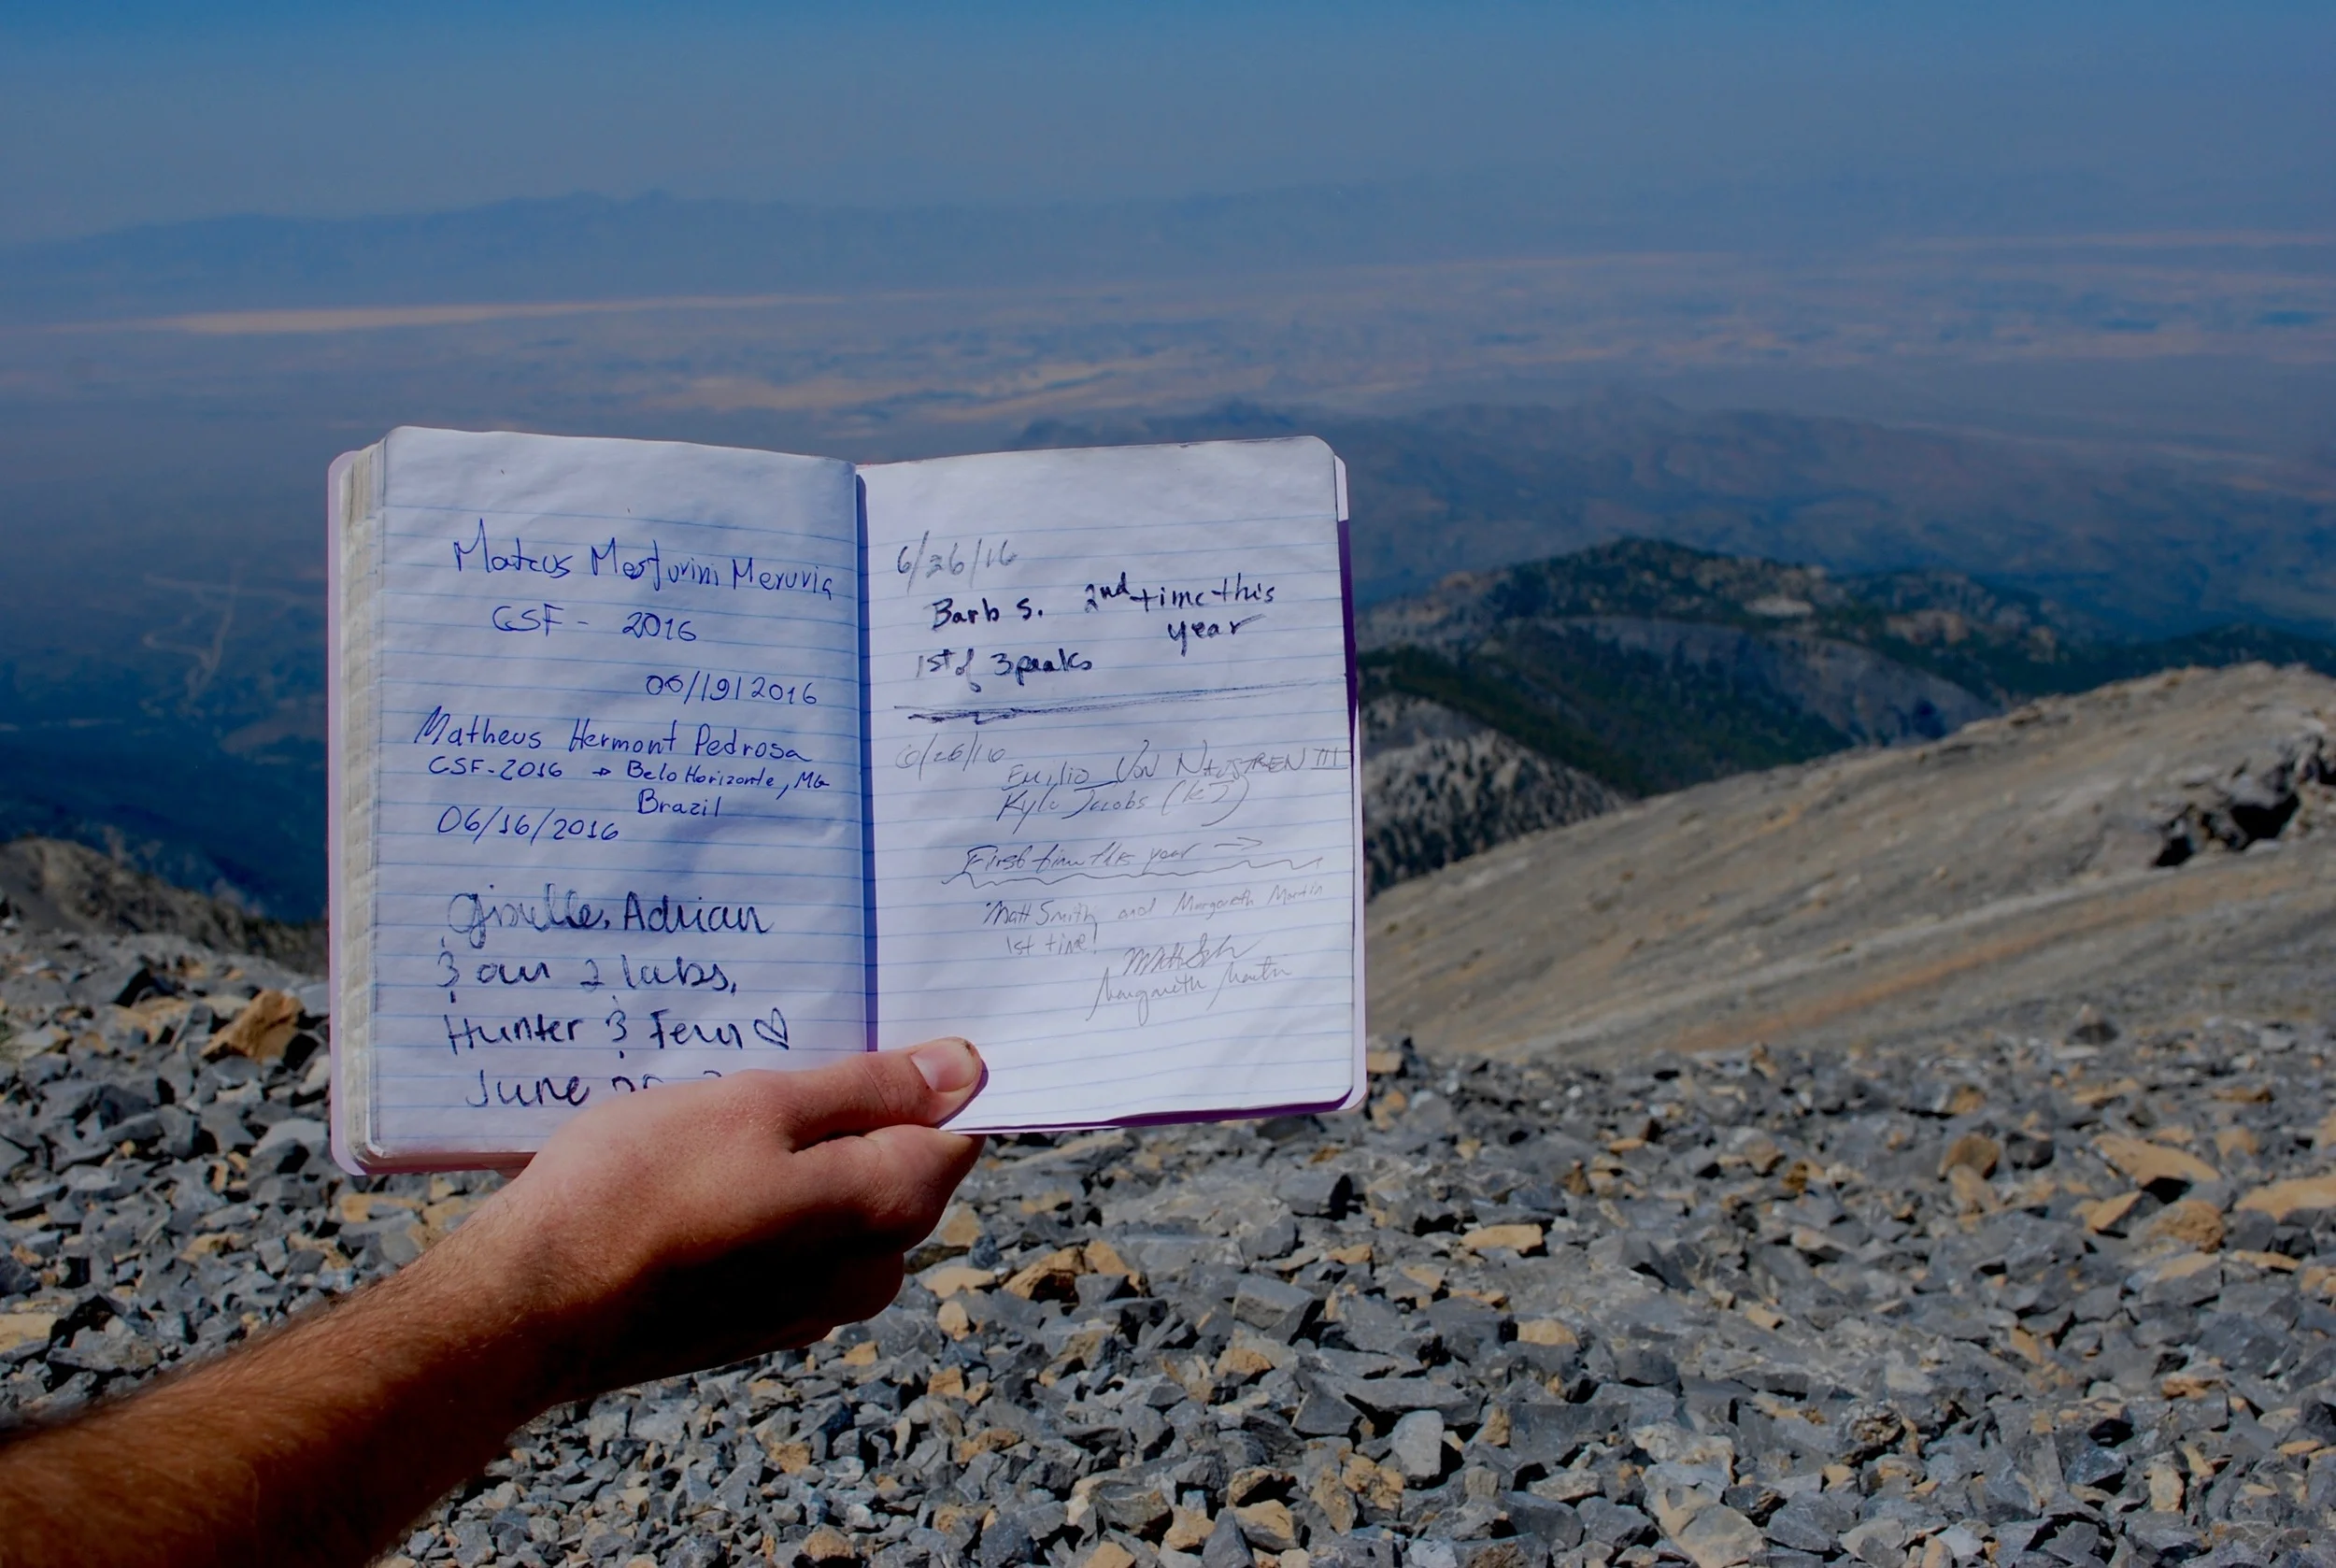 Mateus Mesturini Meruvia
CSF - 2016
06/19/2016
Matheus Hermont Pedrosa
CSF-2016 → Belo Horizonte, MG
Brazil
06/16/2016
Giselle, Adrian
& our 2 labs,
Hunter & Fern ♡
June
6/26/16
Barb S. 2nd time this
year
1st of 3 peaks
6/26/16
Emilio Von III
Kyle Jacobs (KJ)
First time this year →
Matt Smith and Margareth Martin
1st time!
Margareth Martin